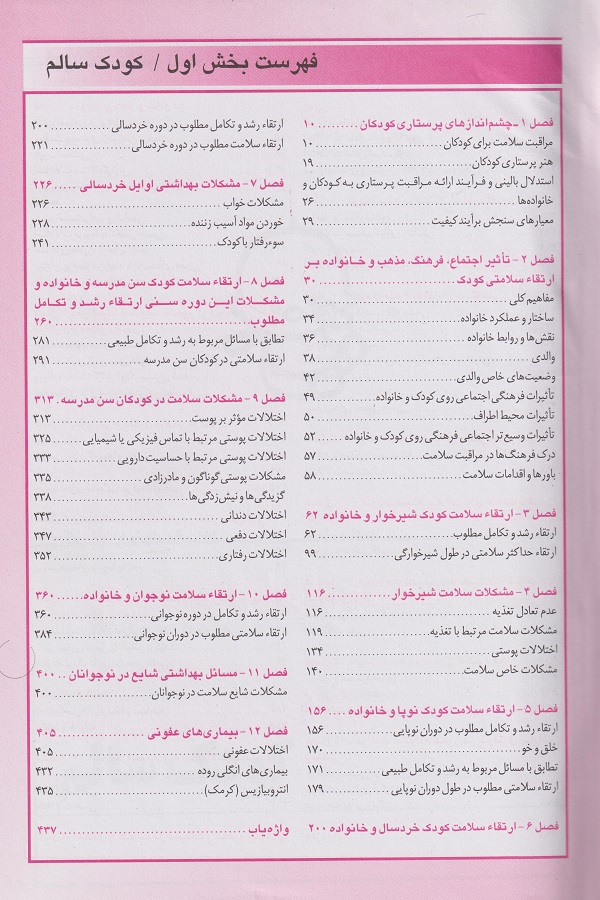 فهرست بخش اول / کودک سالم
فصل ۱ ـ چشم‌اندازهای پرستاری کودکان .......... ۱۰
مراقبت سلامت برای کودکان .......... ۱۰
هنر پرستاری کودکان .......... ۱۹
استدلال بالینی و فرآیند ارائه مراقبت پرستاری به کودکان و
خانواده‌ها .......... ۲۶
معیارهای سنجش برآیند کیفیت .......... ۲۹
فصل ۲ - تأثیر اجتماع، فرهنگ، مذهب و خانواده بر
ارتقاء سلامتی کودک .......... ۳۰
مفاهیم کلی .......... ۳۰
ساختار و عملکرد خانواده .......... ۳۴
نقش‌ها و روابط خانواده .......... ۳۶
والدی .......... ۳۸
وضعیت‌های خاص والدی .......... ۴۲
تأثیرات فرهنگی اجتماعی روی کودک و خانواده .......... ۴۹
تأثیرات محیط اطراف .......... ۵۰
تأثیرات وسیع‌تر اجتماعی فرهنگی روی کودک و خانواده ...... ۵۲
درک فرهنگ‌ها در مراقبت سلامت .......... ۵۷
باورها و اقدامات سلامت .......... ۵۸
فصل ۳ - ارتقاء سلامت کودک شیرخوار و خانواده ۶۲
ارتقاء رشد و تکامل مطلوب .......... ۶۲
ارتقاء حداکثر سلامتی در طول شیرخوارگی .......... ۹۹
فصل ۴ - مشکلات سلامت شیرخوار .......... ۱۱۶
عدم تعادل تغذیه .......... ۱۱۶
مشکلات سلامت مرتبط با تغذیه .......... ۱۱۹
اختلالات پوستی .......... ۱۳۴
مشکلات خاص سلامت .......... ۱۴۰
فصل ۵ - ارتقاء سلامت کودک نوپا و خانواده .... ۱۵۶
ارتقاء رشد و تکامل مطلوب در دوران نوپایی .......... ۱۵۶
خلق و خو .......... ۱۷۰
تطابق با مسائل مربوط به رشد و تکامل طبیعی .......... ۱۷۱
ارتقاء سلامتی مطلوب در طول دوران نوپایی .......... ۱۷۹
فصل ۶ - ارتقاء سلامت کودک خردسال و خانواده ۲۰۰
ارتقاء رشد و تکامل مطلوب در دوره خردسالی .......... ۲۰۰
ارتقاء سلامت مطلوب در دوره خردسالی .......... ۲۲۱
فصل ۷ - مشکلات بهداشتی اوایل خردسالی ..... ۲۲۶
مشکلات خواب .......... ۲۲۶
خوردن مواد آسیب زننده .......... ۲۲۸
سوءرفتار با کودک .......... ۲۴۱
فصل ۸ - ارتقاء سلامت کودک سن مدرسه و خانواده و
مشکلات این دوره سنی ارتقاء رشد و تکامل
مطلوب .......... ۲۶۰
تطابق با مسائل مربوط به رشد و تکامل طبیعی .......... ۲۸۱
ارتقاء سلامتی در کودکان سن مدرسه .......... ۲۹۱
فصل ۹ - مشکلات سلامت در کودکان سن مدرسه . ۳۱۳
اختلالات مؤثر بر پوست .......... ۳۱۳
اختلالات پوستی مرتبط با تماس فیزیکی یا شیمیایی .......... ۳۲۵
اختلالات پوستی مرتبط با حساسیت دارویی .......... ۳۳۳
مشکلات پوستی گوناگون و مادرزادی .......... ۳۳۵
گزیدگی‌ها و نیش‌زدگی‌ها .......... ۳۳۸
اختلالات دندانی .......... ۳۴۳
اختلالات دفعی .......... ۳۴۷
اختلالات رفتاری .......... ۳۵۲
فصل ۱۰ - ارتقاء سلامت نوجوان و خانواده ...... ۳۶۰
ارتقاء رشد و تکامل در دوره نوجوانی .......... ۳۶۰
ارتقاء سلامتی مطلوب در دوران نوجوانی .......... ۳۸۴
فصل ۱۱ - مسائل بهداشتی شایع در نوجوانان .. ۴۰۰
مشکلات شایع سلامت در نوجوانان .......... ۴۰۰
فصل ۱۲ - بیماری‌های عفونی .......... ۴۰۵
اختلالات عفونی .......... ۴۰۵
بیماری‌های انگلی روده .......... ۴۳۲
انتروبیازیس (کرمک) .......... ۴۳۵
واژه‌یاب .......... ۴۳۷